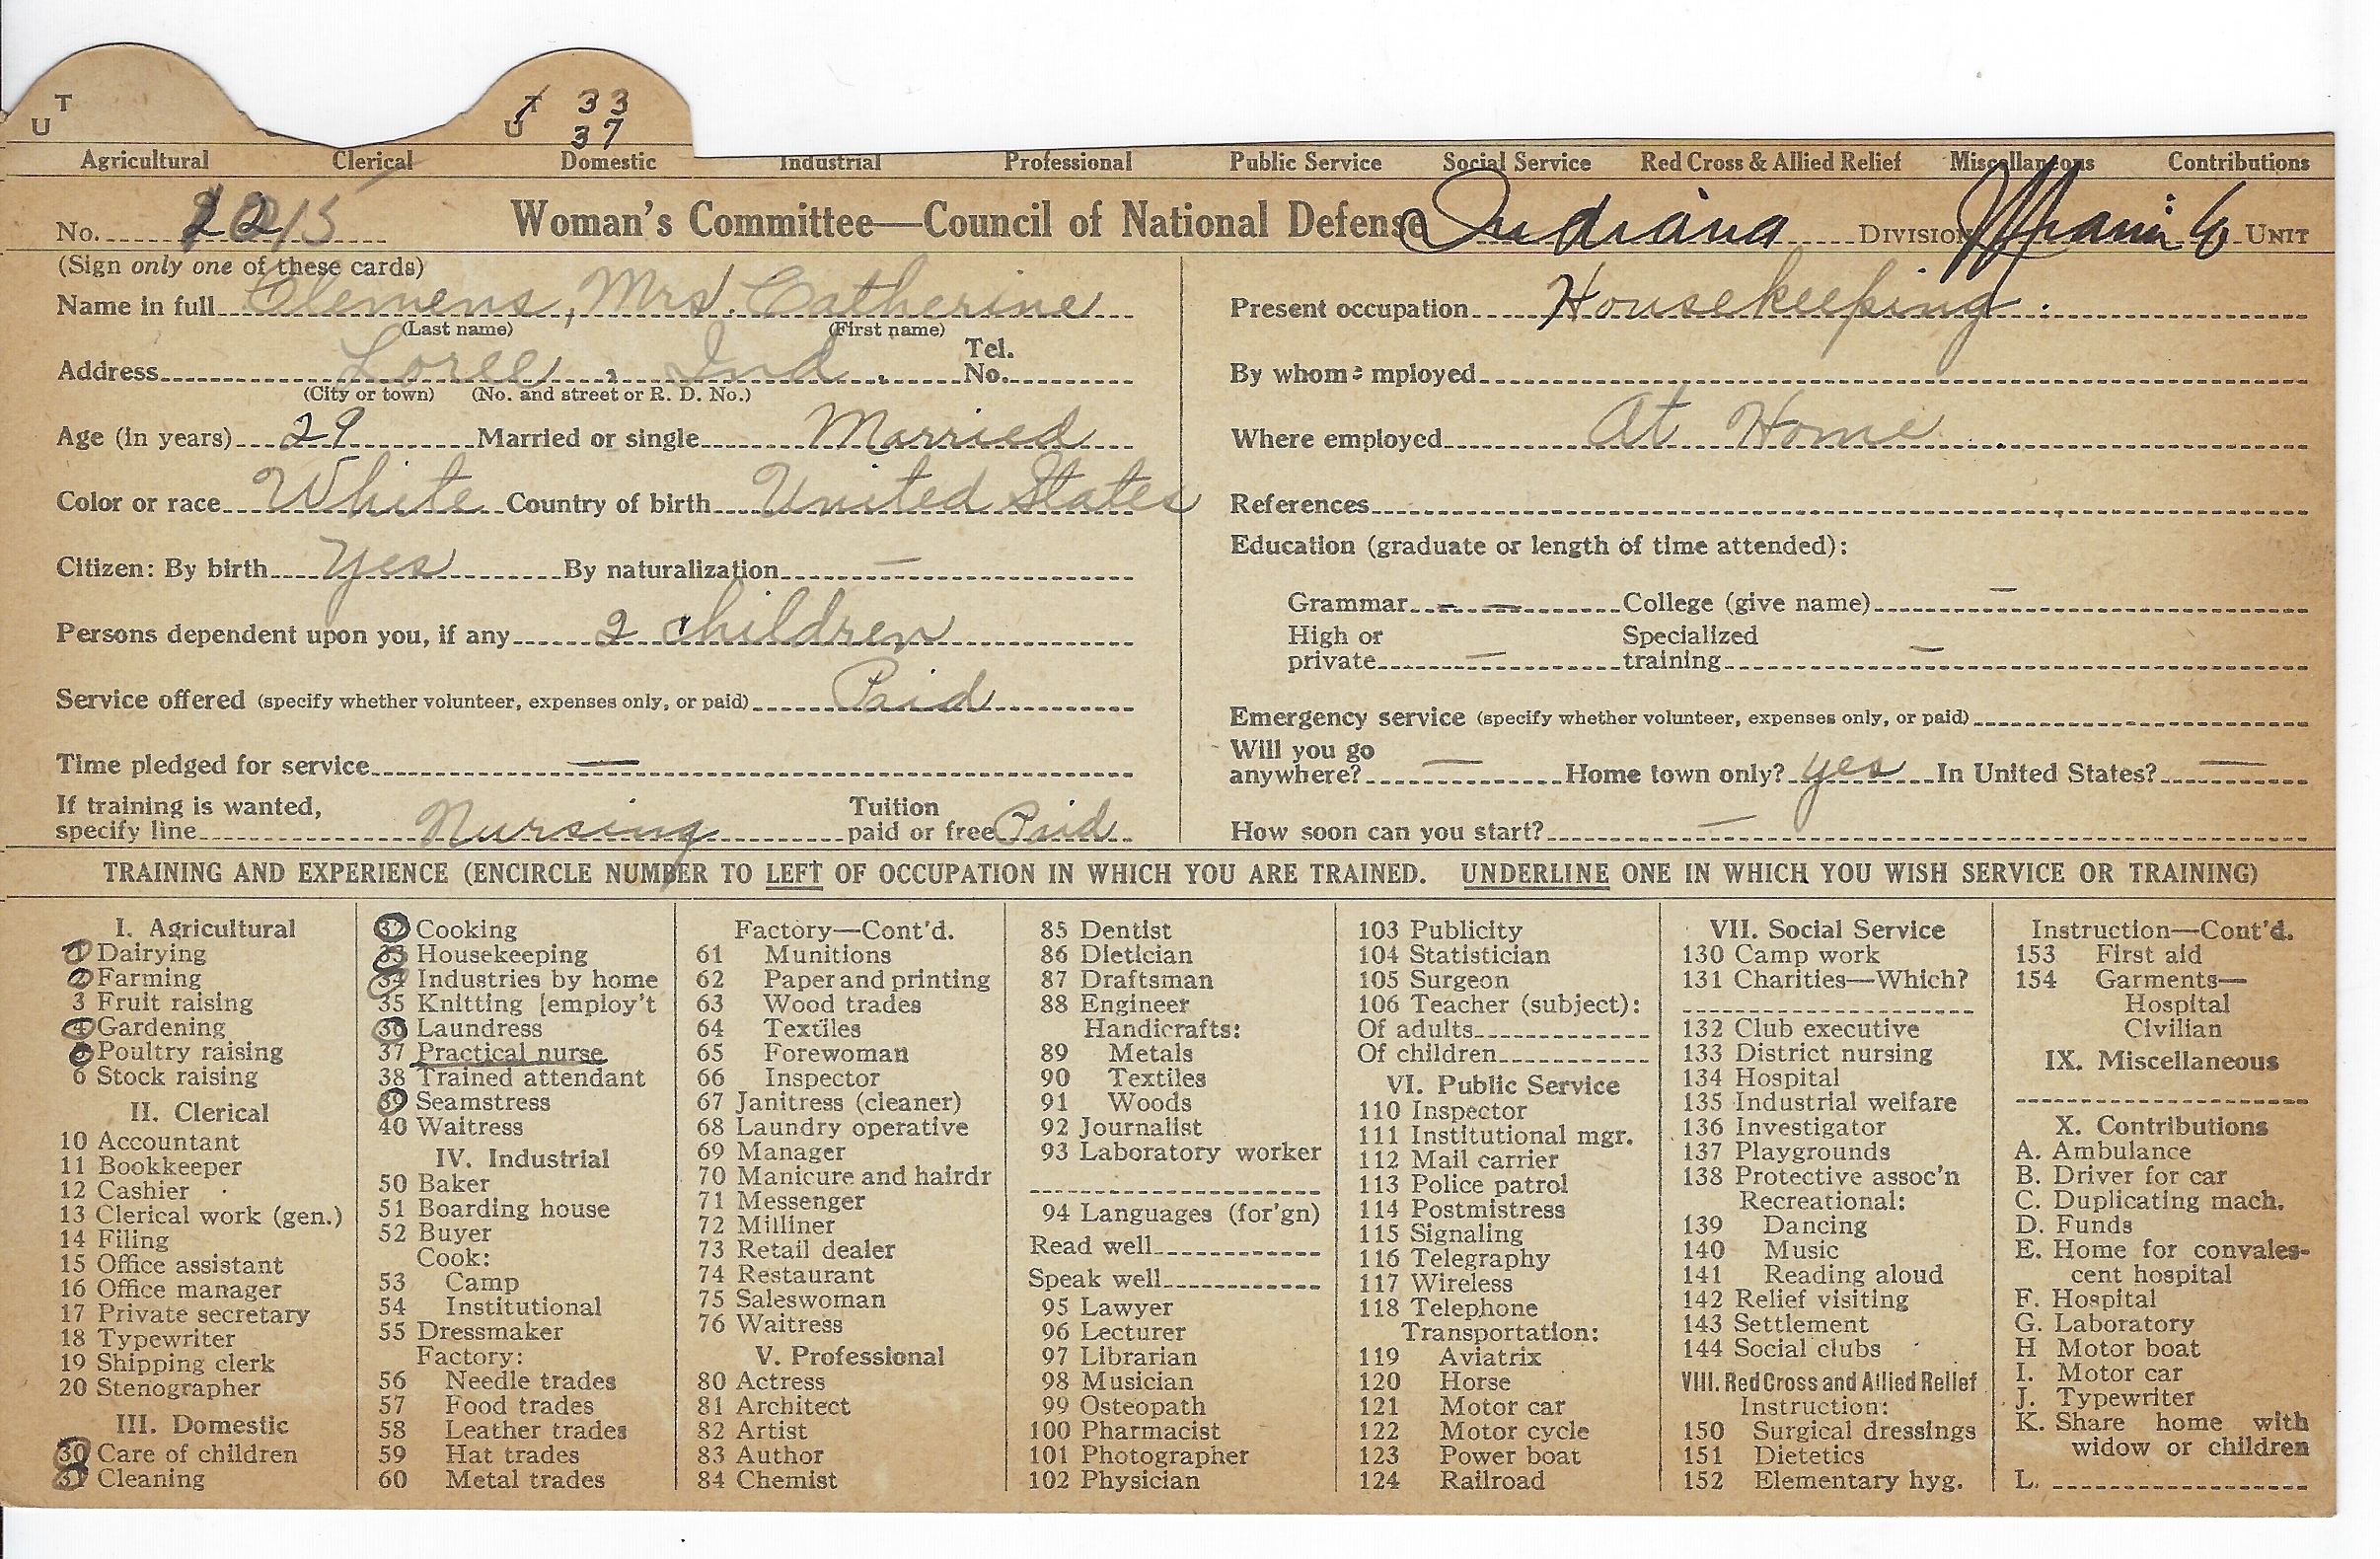 T
U
T 33
U 37
Agricultural Clerical Domestic Industrial Professional Public Service Social Service Red Cross & Allied Relief Miscellaneous Contributions
No. Woman's Committee—Council of National Defense Indiana DIVISION Miami Co UNIT
(Sign only one of these cards)
Name in full Clemens, Mrs. Catherine
(Last name) (First name)
Address Loree, Ind. Tel. No.
(City or town) (No. and street or R. D. No.)
Age (in years) 29 Married or single Married
Color or race White Country of birth United States
Citizen: By birth Yes By naturalization —
Persons dependent upon you, if any 2 children
Service offered (specify whether volunteer, expenses only, or paid) Paid
Time pledged for service —
If training is wanted,
specify line Nursing Tuition paid or free Paid
Present occupation Housekeeping.
By whom employed
Where employed At Home.
References
Education (graduate or length of time attended):
Grammar — — College (give name) —
High or private — Specialized training —
Emergency service (specify whether volunteer, expenses only, or paid)
Will you go
anywhere? — Home town only? yes In United States? —
How soon can you start? —
TRAINING AND EXPERIENCE (ENCIRCLE NUMBER TO LEFT OF OCCUPATION IN WHICH YOU ARE TRAINED. UNDERLINE ONE IN WHICH YOU WISH SERVICE OR TRAINING)
I. Agricultural
1 Dairying
2 Farming
3 Fruit raising
4 Gardening
5 Poultry raising
6 Stock raising
II. Clerical
10 Accountant
11 Bookkeeper
12 Cashier
13 Clerical work (gen.)
14 Filing
15 Office assistant
16 Office manager
17 Private secretary
18 Typewriter
19 Shipping clerk
20 Stenographer
III. Domestic
30 Care of children
31 Cleaning
32 Cooking
33 Housekeeping
34 Industries by home
35 Knitting [employ't
36 Laundress
37 Practical nurse
38 Trained attendant
39 Seamstress
40 Waitress
IV. Industrial
50 Baker
51 Boarding house
52 Buyer
Cook:
53 Camp
54 Institutional
55 Dressmaker
Factory:
56 Needle trades
57 Food trades
58 Leather trades
59 Hat trades
60 Metal trades
Factory—Cont'd.
61 Munitions
62 Paper and printing
63 Wood trades
64 Textiles
65 Forewoman
66 Inspector
67 Janitress (cleaner)
68 Laundry operative
69 Manager
70 Manicure and hairdr
71 Messenger
72 Milliner
73 Retail dealer
74 Restaurant
75 Saleswoman
76 Waitress
V. Professional
80 Actress
81 Architect
82 Artist
83 Author
84 Chemist
85 Dentist
86 Dietician
87 Draftsman
88 Engineer
Handicrafts:
89 Metals
90 Textiles
91 Woods
92 Journalist
93 Laboratory worker
94 Languages (for'gn)
Read well
Speak well
95 Lawyer
96 Lecturer
97 Librarian
98 Musician
99 Osteopath
100 Pharmacist
101 Photographer
102 Physician
103 Publicity
104 Statistician
105 Surgeon
106 Teacher (subject):
Of adults
Of children
VI. Public Service
110 Inspector
111 Institutional mgr.
112 Mail carrier
113 Police patrol
114 Postmistress
115 Signaling
116 Telegraphy
117 Wireless
118 Telephone
Transportation:
119 Aviatrix
120 Horse
121 Motor car
122 Motor cycle
123 Power boat
124 Railroad
VII. Social Service
130 Camp work
131 Charities—Which?
132 Club executive
133 District nursing
134 Hospital
135 Industrial welfare
136 Investigator
137 Playgrounds
138 Protective assoc'n
Recreational:
139 Dancing
140 Music
141 Reading aloud
142 Relief visiting
143 Settlement
144 Social clubs
VIII. Red Cross and Allied Relief
Instruction:
150 Surgical dressings
151 Dietetics
152 Elementary hyg.
Instruction—Cont'd.
153 First aid
154 Garments—
Hospital
Civilian
IX. Miscellaneous
X. Contributions
A. Ambulance
B. Driver for car
C. Duplicating mach.
D. Funds
E. Home for convales-
cent hospital
F. Hospital
G. Laboratory
H Motor boat
I. Motor car
J. Typewriter
K. Share home with
widow or children
L.